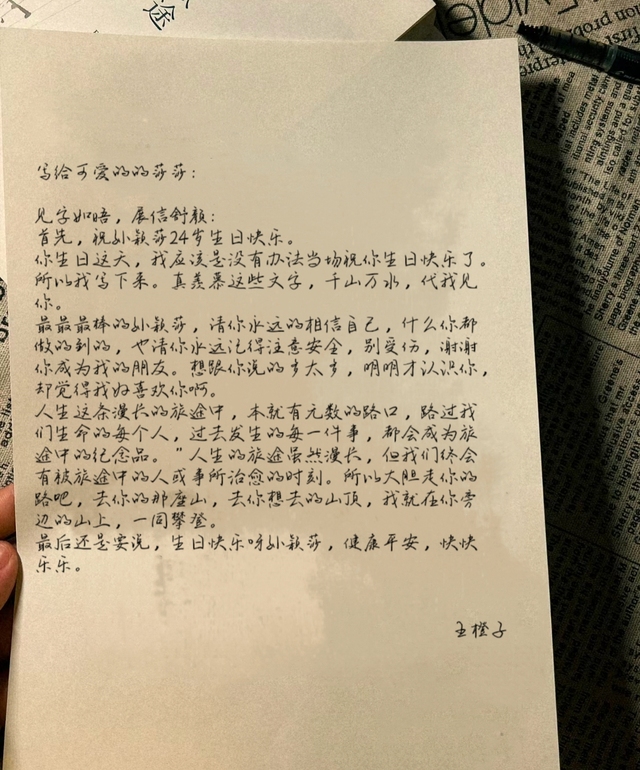 途
写给可爱的的莎莎：
见字如晤，展信舒颜：
首先，祝孙颖莎24岁生日快乐。
你生日这天，我应该是没有办法当场祝你生日快乐了。
所以我写下来。真羡慕这些文字，千山万水，代我见
你。
最最最棒的孙颖莎，请你永远的相信自己，什么你都
做的到的，也请你永远记得注意安全，别受伤，谢谢
你成为我的朋友。想跟你说的多太多，明明才认识你，
却觉得我好喜欢你啊。
人生这条漫长的旅途中，本就有无数的路口，路过我
们生命的每个人，过去发生的每一件事，都会成为旅
途中的纪念品。“人生的旅途虽然漫长，但我们终会
有被旅途中的人或事所治愈的时刻。所以大胆走你的
路吧，去你的那座山，去你想去的山顶，我就在你旁
边的山上，一同攀登。
最后还是要说，生日快乐呀孙颖莎，健康平安，快快
乐乐。
王橙子